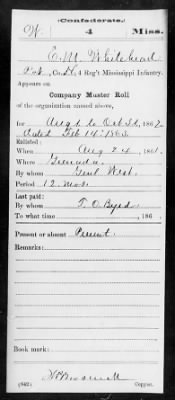 (Confederate.)
W 4 Miss.
E. M. Whitehead
Pvt, Co. K, 4 Reg't Mississippi Infantry.
Appears on
Company Muster Roll
of the organization named above,
for Aug 1 to Oct 31, 1862.
dated Feb 14, 1863.
Enlisted:
When Aug 24, 1861.
Where Grenada
By whom Genl West.
Period 12 mos.
Last paid:
By whom T. O. Byrd
To what time , 186 .
Present or absent Present
Remarks:
Book mark:
(642) Copyist.